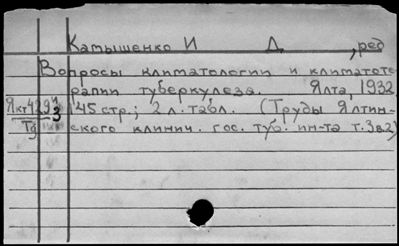 Катышенко И Д, ред
Вопросы климатологии и климатоте
рапии туберкулеза. Ялта, 1932
145 стр.; 2 л. табл. (Труды Ялтин-
ского клинич. гос. туб. ин-та т. 3 в 2)
Як 429
Тд 3